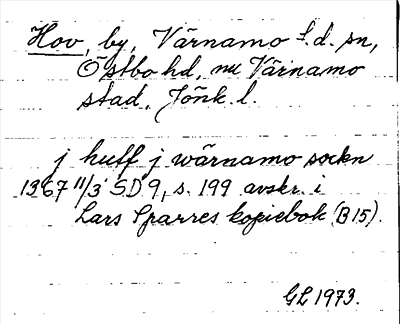 Hov, by, Värnamo l.d. sn,
Östbo hd, nu Värnamo
stad, Jönk. l.
j huff j wärnamo sockn
1367 11/3 SD 9, s. 199 avskr. i
Lars Sparres kopiebok (B 15).
GL 1973.